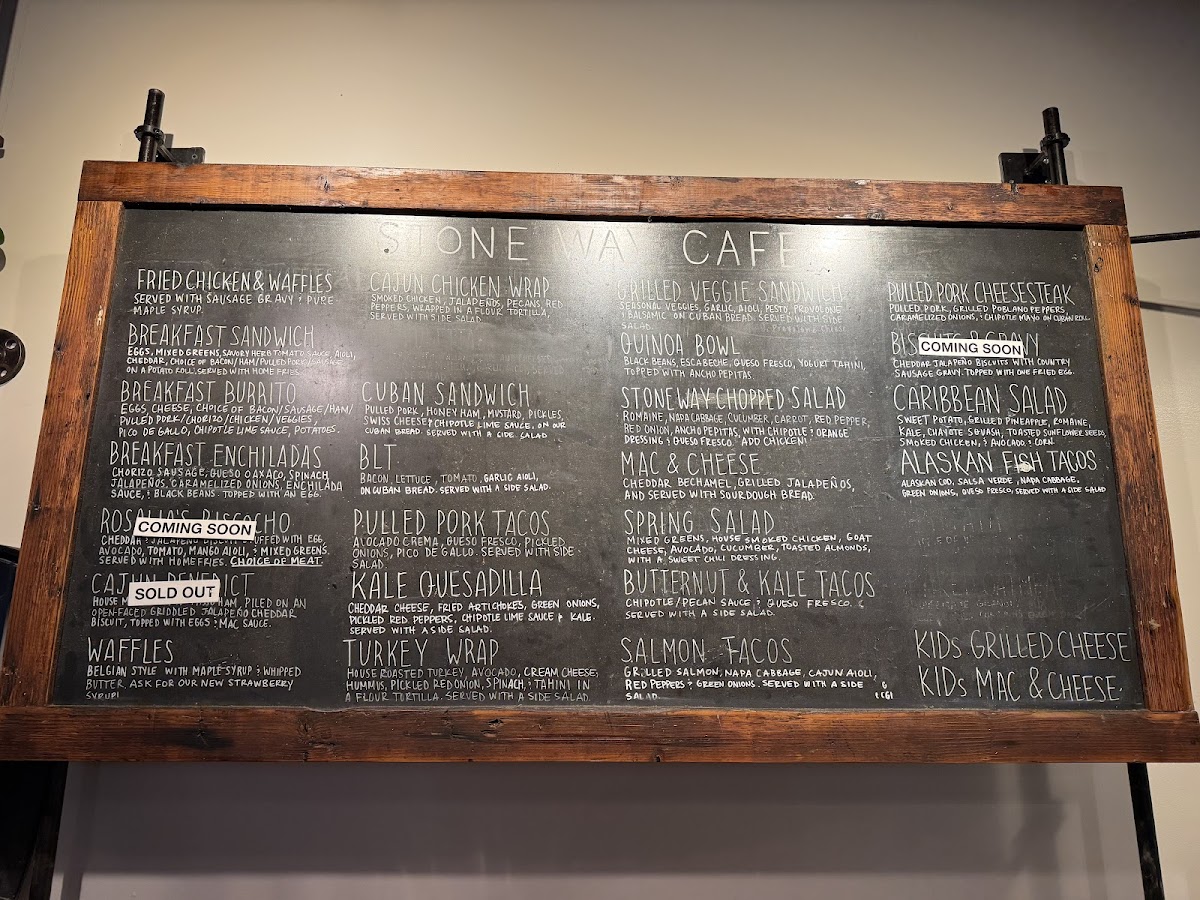 STONE WAY CAFE
FRIED CHICKEN & WAFFLES
SERVED WITH SAUSAGE GRAVY & PURE
MAPLE SYRUP.
BREAKFAST SANDWICH
EGGS, MIXED GREENS, SAVORY HERB TOMATO SAUCE, AIOLI,
CHEDDAR, CHOICE OF BACON/HAM/PULLED PORK/SAUSAGE
ON A POTATO ROLL. SERVED WITH HOME FRIES.
BREAKFAST BURRITO
EGGS, CHEESE, CHOICE OF BACON/SAUSAGE/HAM/
PULLED PORK/CHORIZO/CHICKEN/VEGGIES,
PICO DE GALLO, CHIPOTLE LIME SAUCE, POTATOES.
BREAKFAST ENCHILADAS
CHORIZO SAUSAGE, QUESO OAXACO, SPINACH,
JALAPEÑOS, CARAMELIZED ONIONS, ENCHILADA
SAUCE, & BLACK BEANS. TOPPED WITH AN EGG.
ROSALIA'S BISCOCHO
COMING SOON
CHEDDAR & JALAPEÑO BISCUIT STUFFED WITH EGG,
AVOCADO, TOMATO, MANGO AIOLI, & MIXED GREENS.
SERVED WITH HOMEFRIES. CHOICE OF MEAT.
CAJUN BENEDICT
SOLD OUT
HOUSE HAM, PILED ON AN
OPEN-FACED GRIDDLED JALAPEÑO CHEDDAR
BISCUIT, TOPPED WITH EGGS & MAC SAUCE.
WAFFLES
BELGIAN STYLE WITH MAPLE SYRUP & WHIPPED
BUTTER. ASK FOR OUR NEW STRAWBERRY
SYRUP!
CAJUN CHICKEN WRAP
SMOKED CHICKEN, JALAPEÑOS, PECANS, RED
PEPPERS, WRAPPED IN A FLOUR TORTILLA,
SERVED WITH SIDE SALAD.
CUBAN SANDWICH
PULLED PORK, HONEY HAM, MUSTARD, PICKLES,
SWISS CHEESE & CHIPOTLE LIME SAUCE. ON OUR
CUBAN BREAD. SERVED WITH A SIDE SALAD
BLT
BACON, LETTUCE, TOMATO, GARLIC AIOLI,
ON CUBAN BREAD. SERVED WITH A SIDE SALAD.
PULLED PORK TACOS
AVOCADO CREMA, QUESO FRESCO, PICKLED
ONIONS, PICO DE GALLO. SERVED WITH SIDE
SALAD.
KALE QUESADILLA
CHEDDAR CHEESE, FRIED ARTICHOKES, GREEN ONIONS,
PICKLED RED PEPPERS, CHIPOTLE LIME SAUCE & KALE.
SERVED WITH A SIDE SALAD.
TURKEY WRAP
HOUSE ROASTED TURKEY, AVOCADO, CREAM CHEESE,
HUMMUS, PICKLED RED ONION, SPINACH & TAHINI IN
A FLOUR TORTILLA. SERVED WITH A SIDE SALAD.
GRILLED VEGGIE SANDWICH
SEASONAL VEGGIES, GARLIC, AIOLI, PESTO, PROVOLONE
& BALSAMIC ON CUBAN BREAD. SERVED WITH SIDE
SALAD.
QUINOA BOWL
BLACK BEANS, ESCABECHE, QUESO FRESCO, YOGURT TAHINI,
TOPPED WITH ANCHO PEPITAS.
STONEWAY CHOPPED SALAD
ROMAINE, NAPA CABBAGE, CUCUMBER, CARROT, RED PEPPER,
RED ONION, ANCHO PEPITAS, WITH CHIPOTLE & ORANGE
DRESSING & QUESO FRESCO. ADD CHICKEN!
MAC & CHEESE
CHEDDAR BECHAMEL, GRILLED JALAPEÑOS,
AND SERVED WITH SOURDOUGH BREAD.
SPRING SALAD
MIXED GREENS, HOUSE SMOKED CHICKEN, GOAT
CHEESE, AVOCADO, CUCUMBER, TOASTED ALMONDS,
WITH A SWEET CHILI DRESSING.
BUTTERNUT & KALE TACOS
CHIPOTLE/PECAN SAUCE & QUESO FRESCO.
SERVED WITH A SIDE SALAD.
SALMON TACOS
GRILLED SALMON, NAPA CABBAGE, CAJUN AIOLI,
RED PEPPERS & GREEN ONIONS. SERVED WITH A SIDE
SALAD.
PULLED PORK CHEESESTEAK
PULLED PORK, GRILLED POBLANO PEPPERS,
CARAMELIZED ONIONS, & CHIPOTLE MAYO ON CUBAN ROLL.
BISCUITS & GRAVY
COMING SOON
CHEDDAR JALAPEÑO BISCUITS WITH COUNTRY
SAUSAGE GRAVY. TOPPED WITH ONE FRIED EGG.
CARIBBEAN SALAD
SWEET POTATO, GRILLED PINEAPPLE, ROMAINE,
KALE, CHAYOTE SQUASH, TOASTED SUNFLOWER SEEDS,
SMOKED CHICKEN, & AVOCADO & CORN.
ALASKAN FISH TACOS
ALASKAN COD, SALSA VERDE, NAPA CABBAGE,
GREEN ONIONS, QUESO FRESCO, SERVED WITH A SIDE SALAD
KIDs GRILLED CHEESE
KIDs MAC & CHEESE.